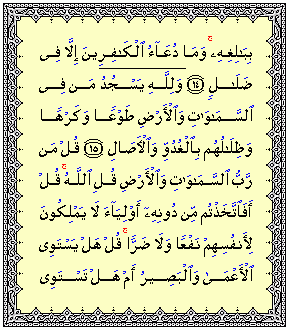 بِبَـٰلِغِهِۦ ۚ وَمَا دُعَآءُ ٱلْكَـٰفِرِينَ إِلَّا فِى
ضَلَـٰلٍ ﴿١٤﴾ وَلِلَّهِ يَسْجُدُ مَن فِى
ٱلسَّمَـٰوَٰتِ وَٱلْأَرْضِ طَوْعًا وَكَرْهًا
وَظِلَـٰلُهُم بِٱلْغُدُوِّ وَٱلْـَٔاصَالِ ﴿١٥﴾ قُلْ مَن
رَّبُّ ٱلسَّمَـٰوَٰتِ وَٱلْأَرْضِ قُلِ ٱللَّهُ ۚ قُلْ
أَفَٱتَّخَذْتُم مِّن دُونِهِۦٓ أَوْلِيَآءَ لَا يَمْلِكُونَ
لِأَنفُسِهِمْ نَفْعًا وَلَا ضَرًّا ۚ قُلْ هَلْ يَسْتَوِى
ٱلْأَعْمَىٰ وَٱلْبَصِيرُ أَمْ هَلْ تَسْتَوِى